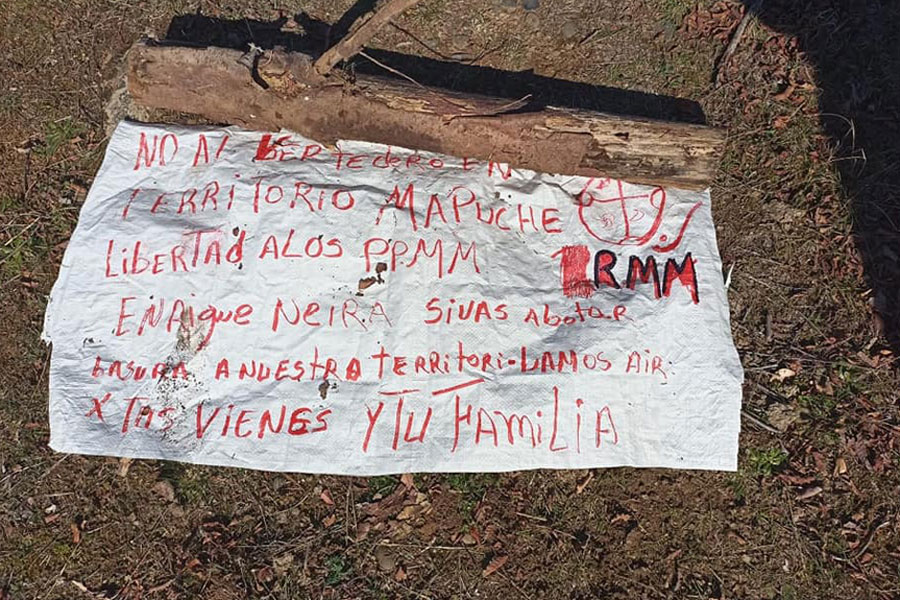 NO Al VERTEDERO EN
TERRITORIO MAPUCHE
LIBERTAd ALOS PPMM
RMM
ENRique NeiRA SIVAS AbotaR
bASURA A NUESTRA TERRITORI. VAMOS AIR.
X TAS VIENES Y TU FAMILIA